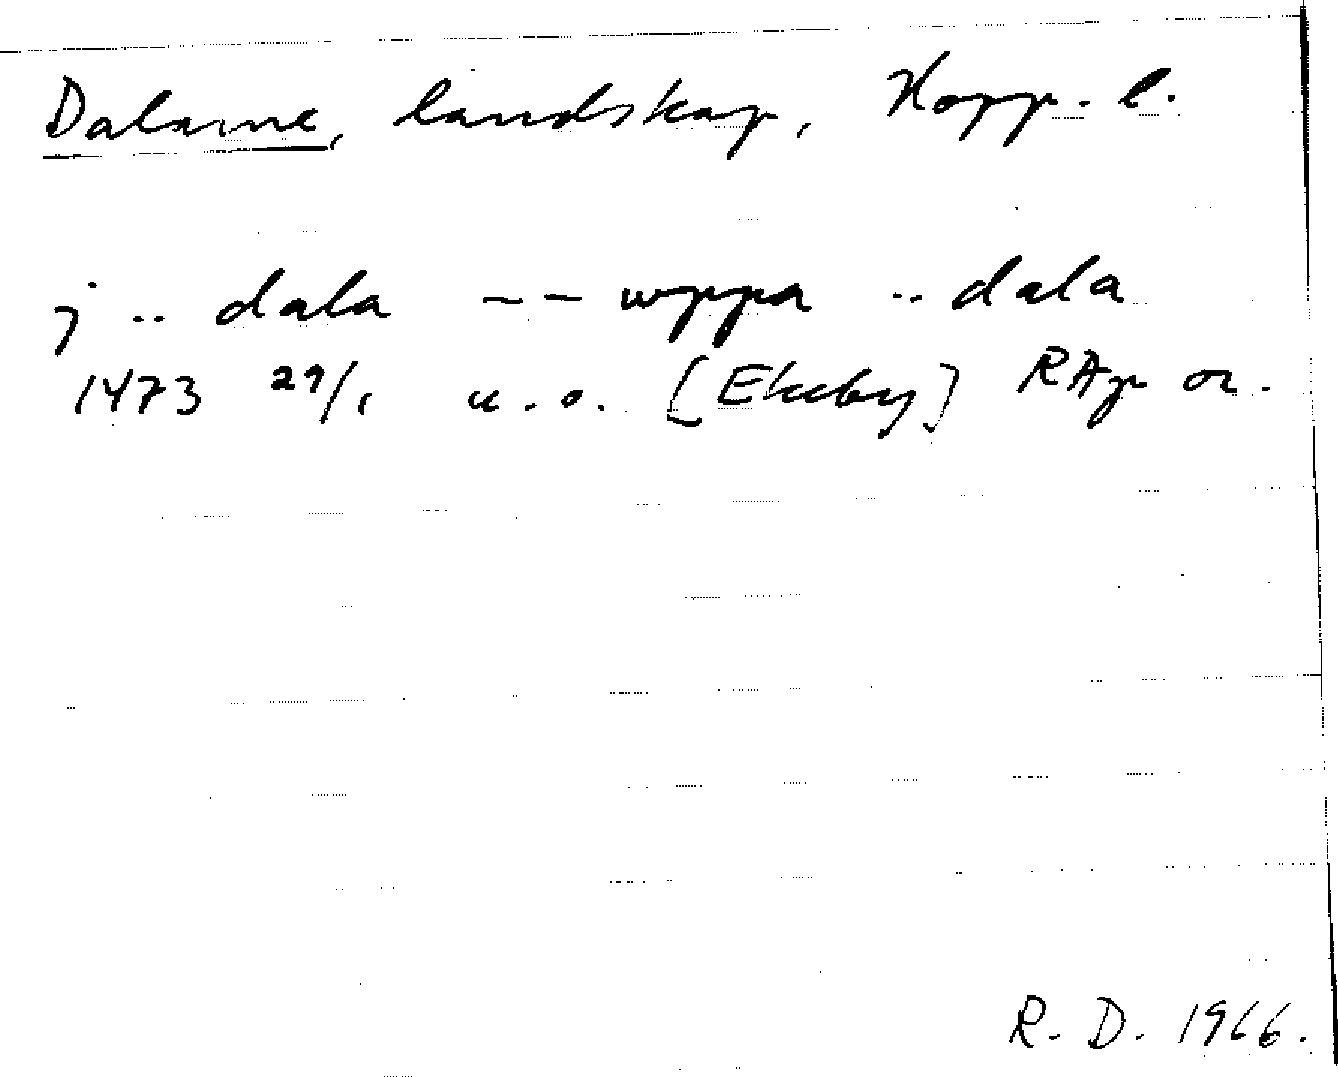 Dalarne, landskap, Kopp. l.
j .. dala -- wppa .. dala
1473 29/1 u.o. [Ekeby] RAp or.
R. D. 1966.